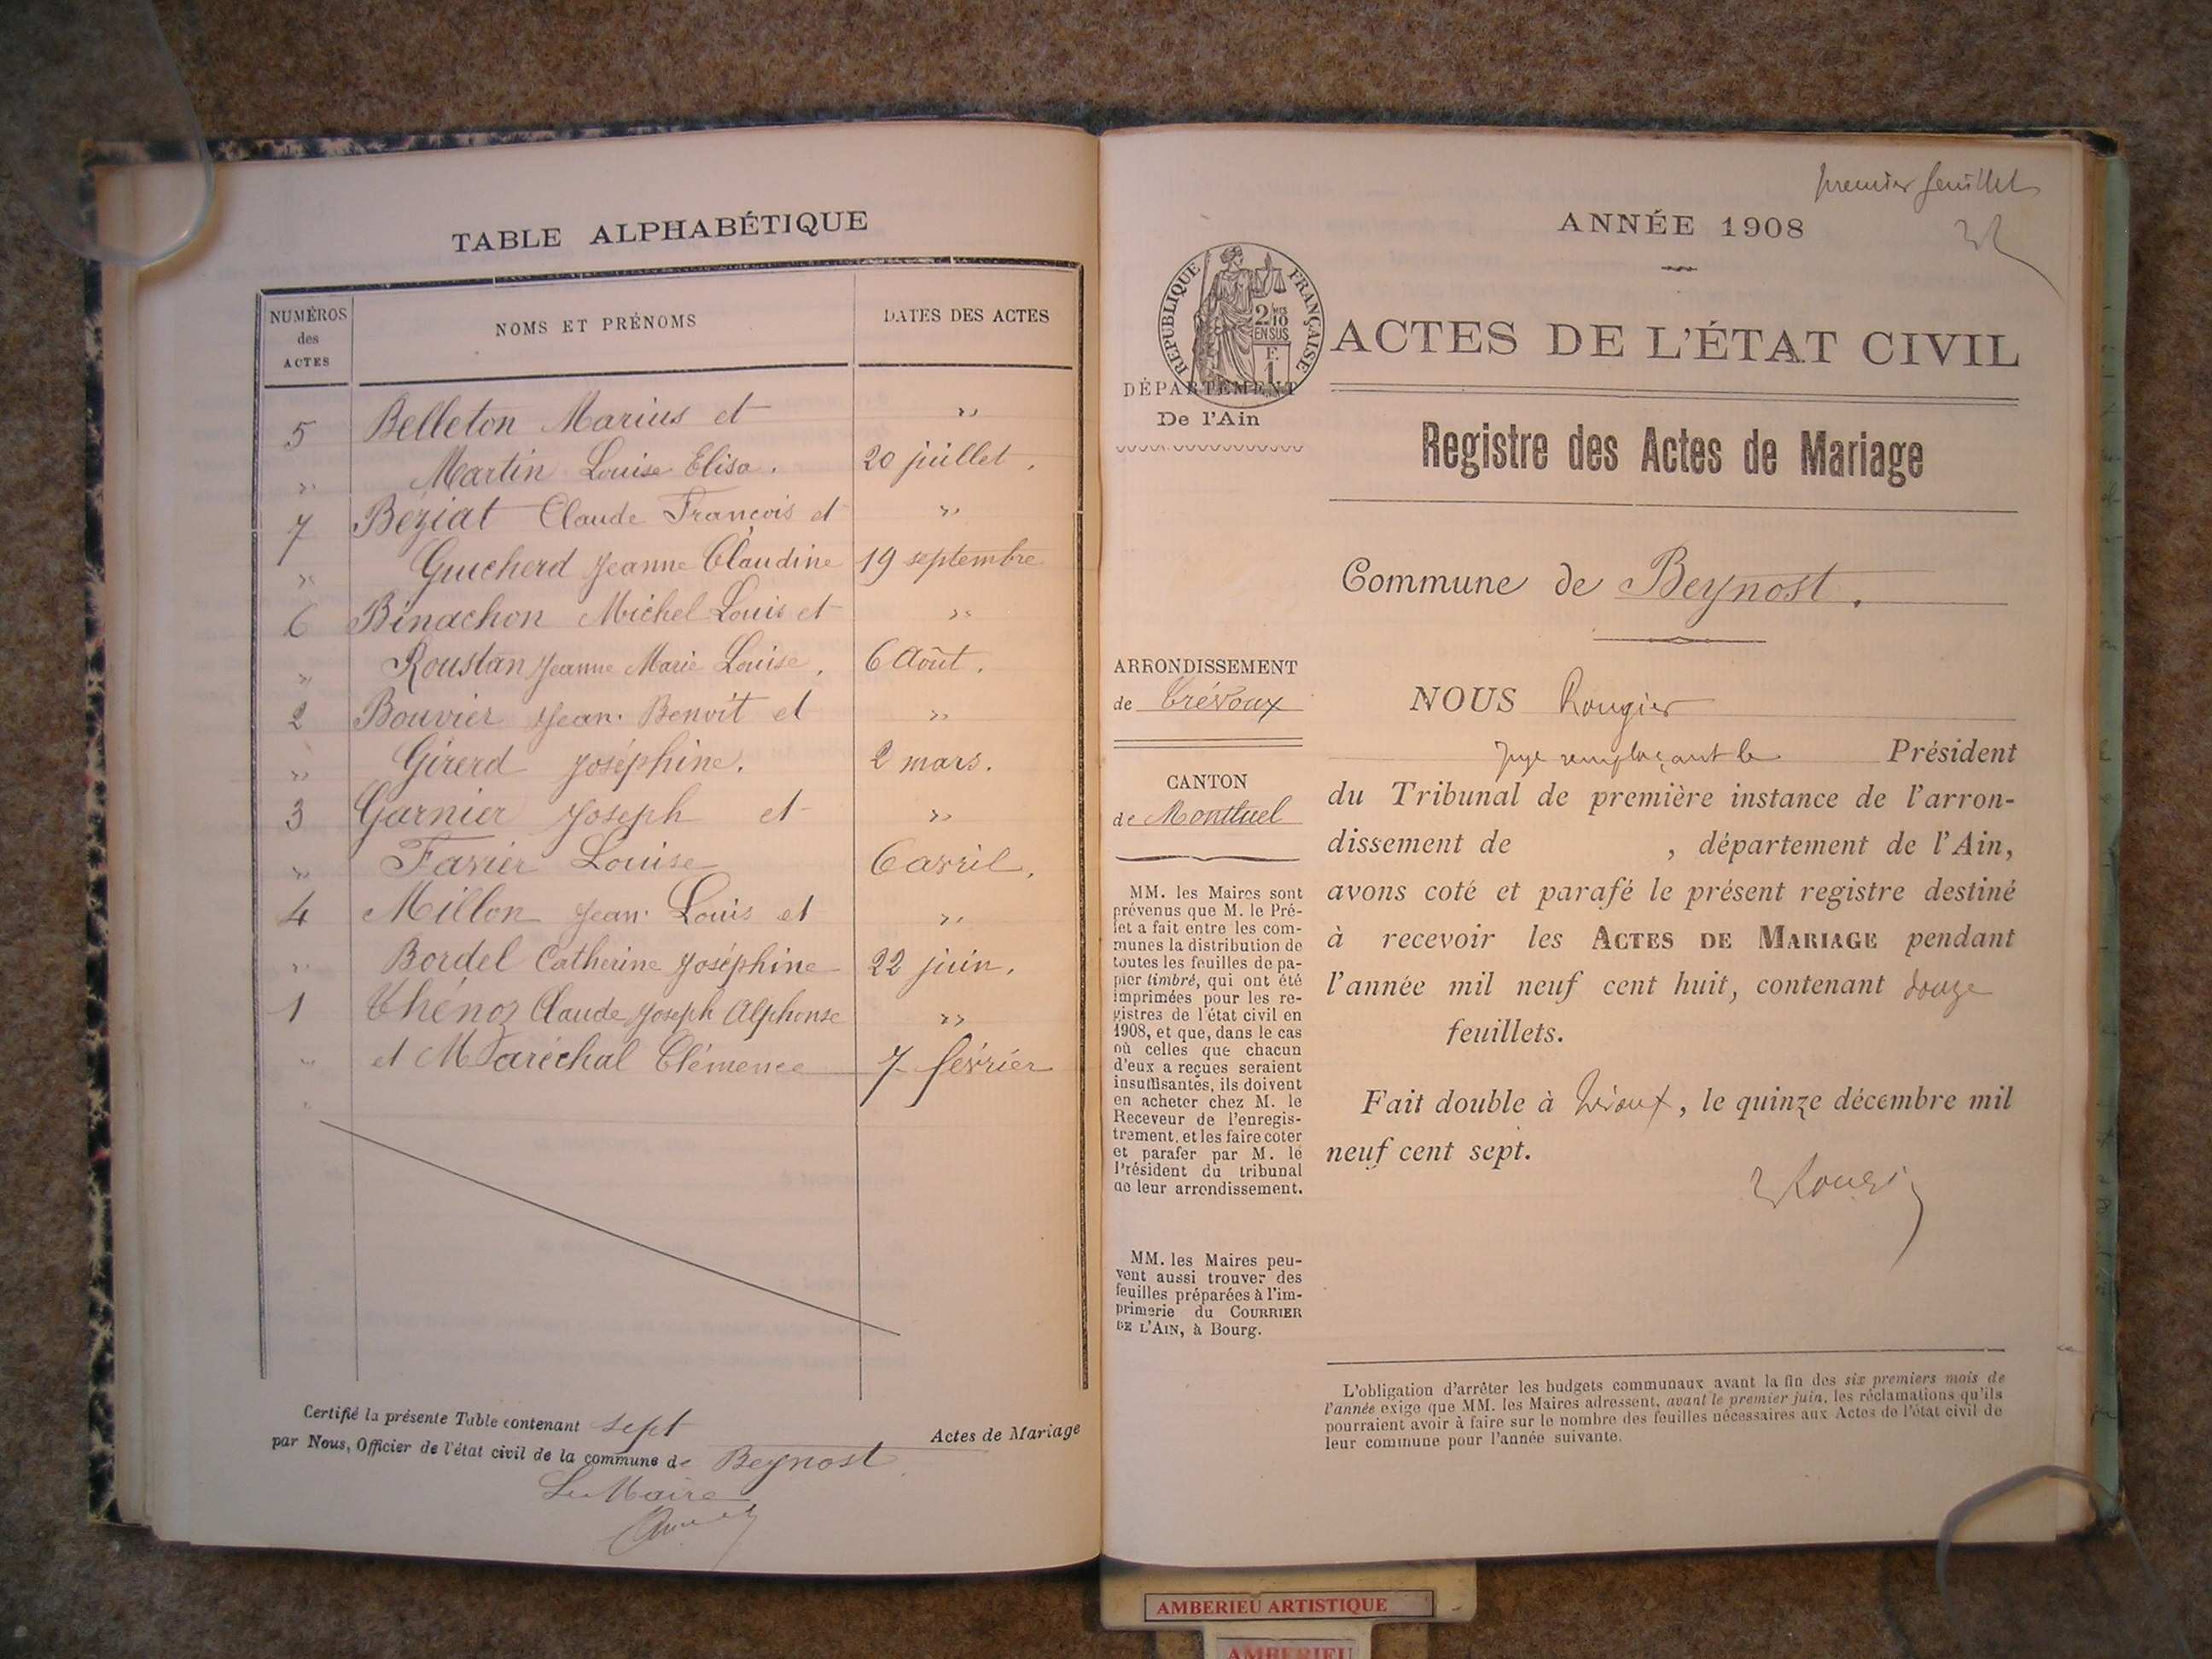 TABLE ALPHABÉTIQUE
NUMÉROS des ACTES NOMS ET PRÉNOMS DATES DES ACTES
5 Belleton Marius et "
" Martin Louise Elisa. 20 juillet.
7 Béziat Claude François et "
" Guicherd Jeanne Claudine 19 septembre
6 Binachon Michel Louis et "
" Roustan Jeanne Marie Louise. 6 Août.
2 Bouvier Jean Benoit et "
" Girerd Joséphine. 2 mars.
3 Garnier Joseph et "
" Favier Louise 6 avril.
4 Millon Jean Louis et "
" Bordel Catherine Joséphine 22 juin.
1 Thénoz Claude Joseph Alphonse "
" et Maréchal Clémence 7 février
Certifié la présente Table contenant sept Actes de Mariage
par Nous, Officier de l'état civil de la commune de Beynost
Le Maire
premier feuillet
ANNÉE 1908
RÉPUBLIQUE FRANÇAISE
2/10 EN SUS
F. 1
ACTES DE L'ÉTAT CIVIL
DÉPARTEMENT
De l'Ain
Registre des Actes de Mariage
Commune de Beynost.
ARRONDISSEMENT
de Trévoux
CANTON
de Montluel
MM. les Maires sont
prévenus que M. le Pré-
fet a fait entre les com-
munes la distribution de
toutes les feuilles de pa-
pier timbré, qui ont été
imprimées pour les re-
gistres de l'état civil en
1908, et que, dans le cas
où celles que chacun
d'eux a reçues seraient
insuffisantes, ils doivent
en acheter chez M. le
Receveur de l'enregis-
trement, et les faire coter
et parafer par M. le
Président du tribunal
de leur arrondissement.
MM. les Maires peu-
vent aussi trouver des
feuilles préparées à l'im-
primerie du COURRIER
DE L'AIN, à Bourg.
NOUS Rougier
juge remplaçant le Président
du Tribunal de première instance de l'arron-
dissement de , département de l'Ain,
avons coté et parafé le présent registre destiné
à recevoir les ACTES DE MARIAGE pendant
l'année mil neuf cent huit, contenant douze
feuillets.
Fait double à Trévoux, le quinze décembre mil
neuf cent sept.
Rougier
L'obligation d'arrêter les budgets communaux avant la fin des six premiers mois de
l'année exige que MM. les Maires adressent, avant le premier juin, les réclamations qu'ils
pourraient avoir à faire sur le nombre des feuilles nécessaires aux Actes de l'état civil de
leur commune pour l'année suivante.
AMBERIEU ARTISTIQUE
AMBERIEU